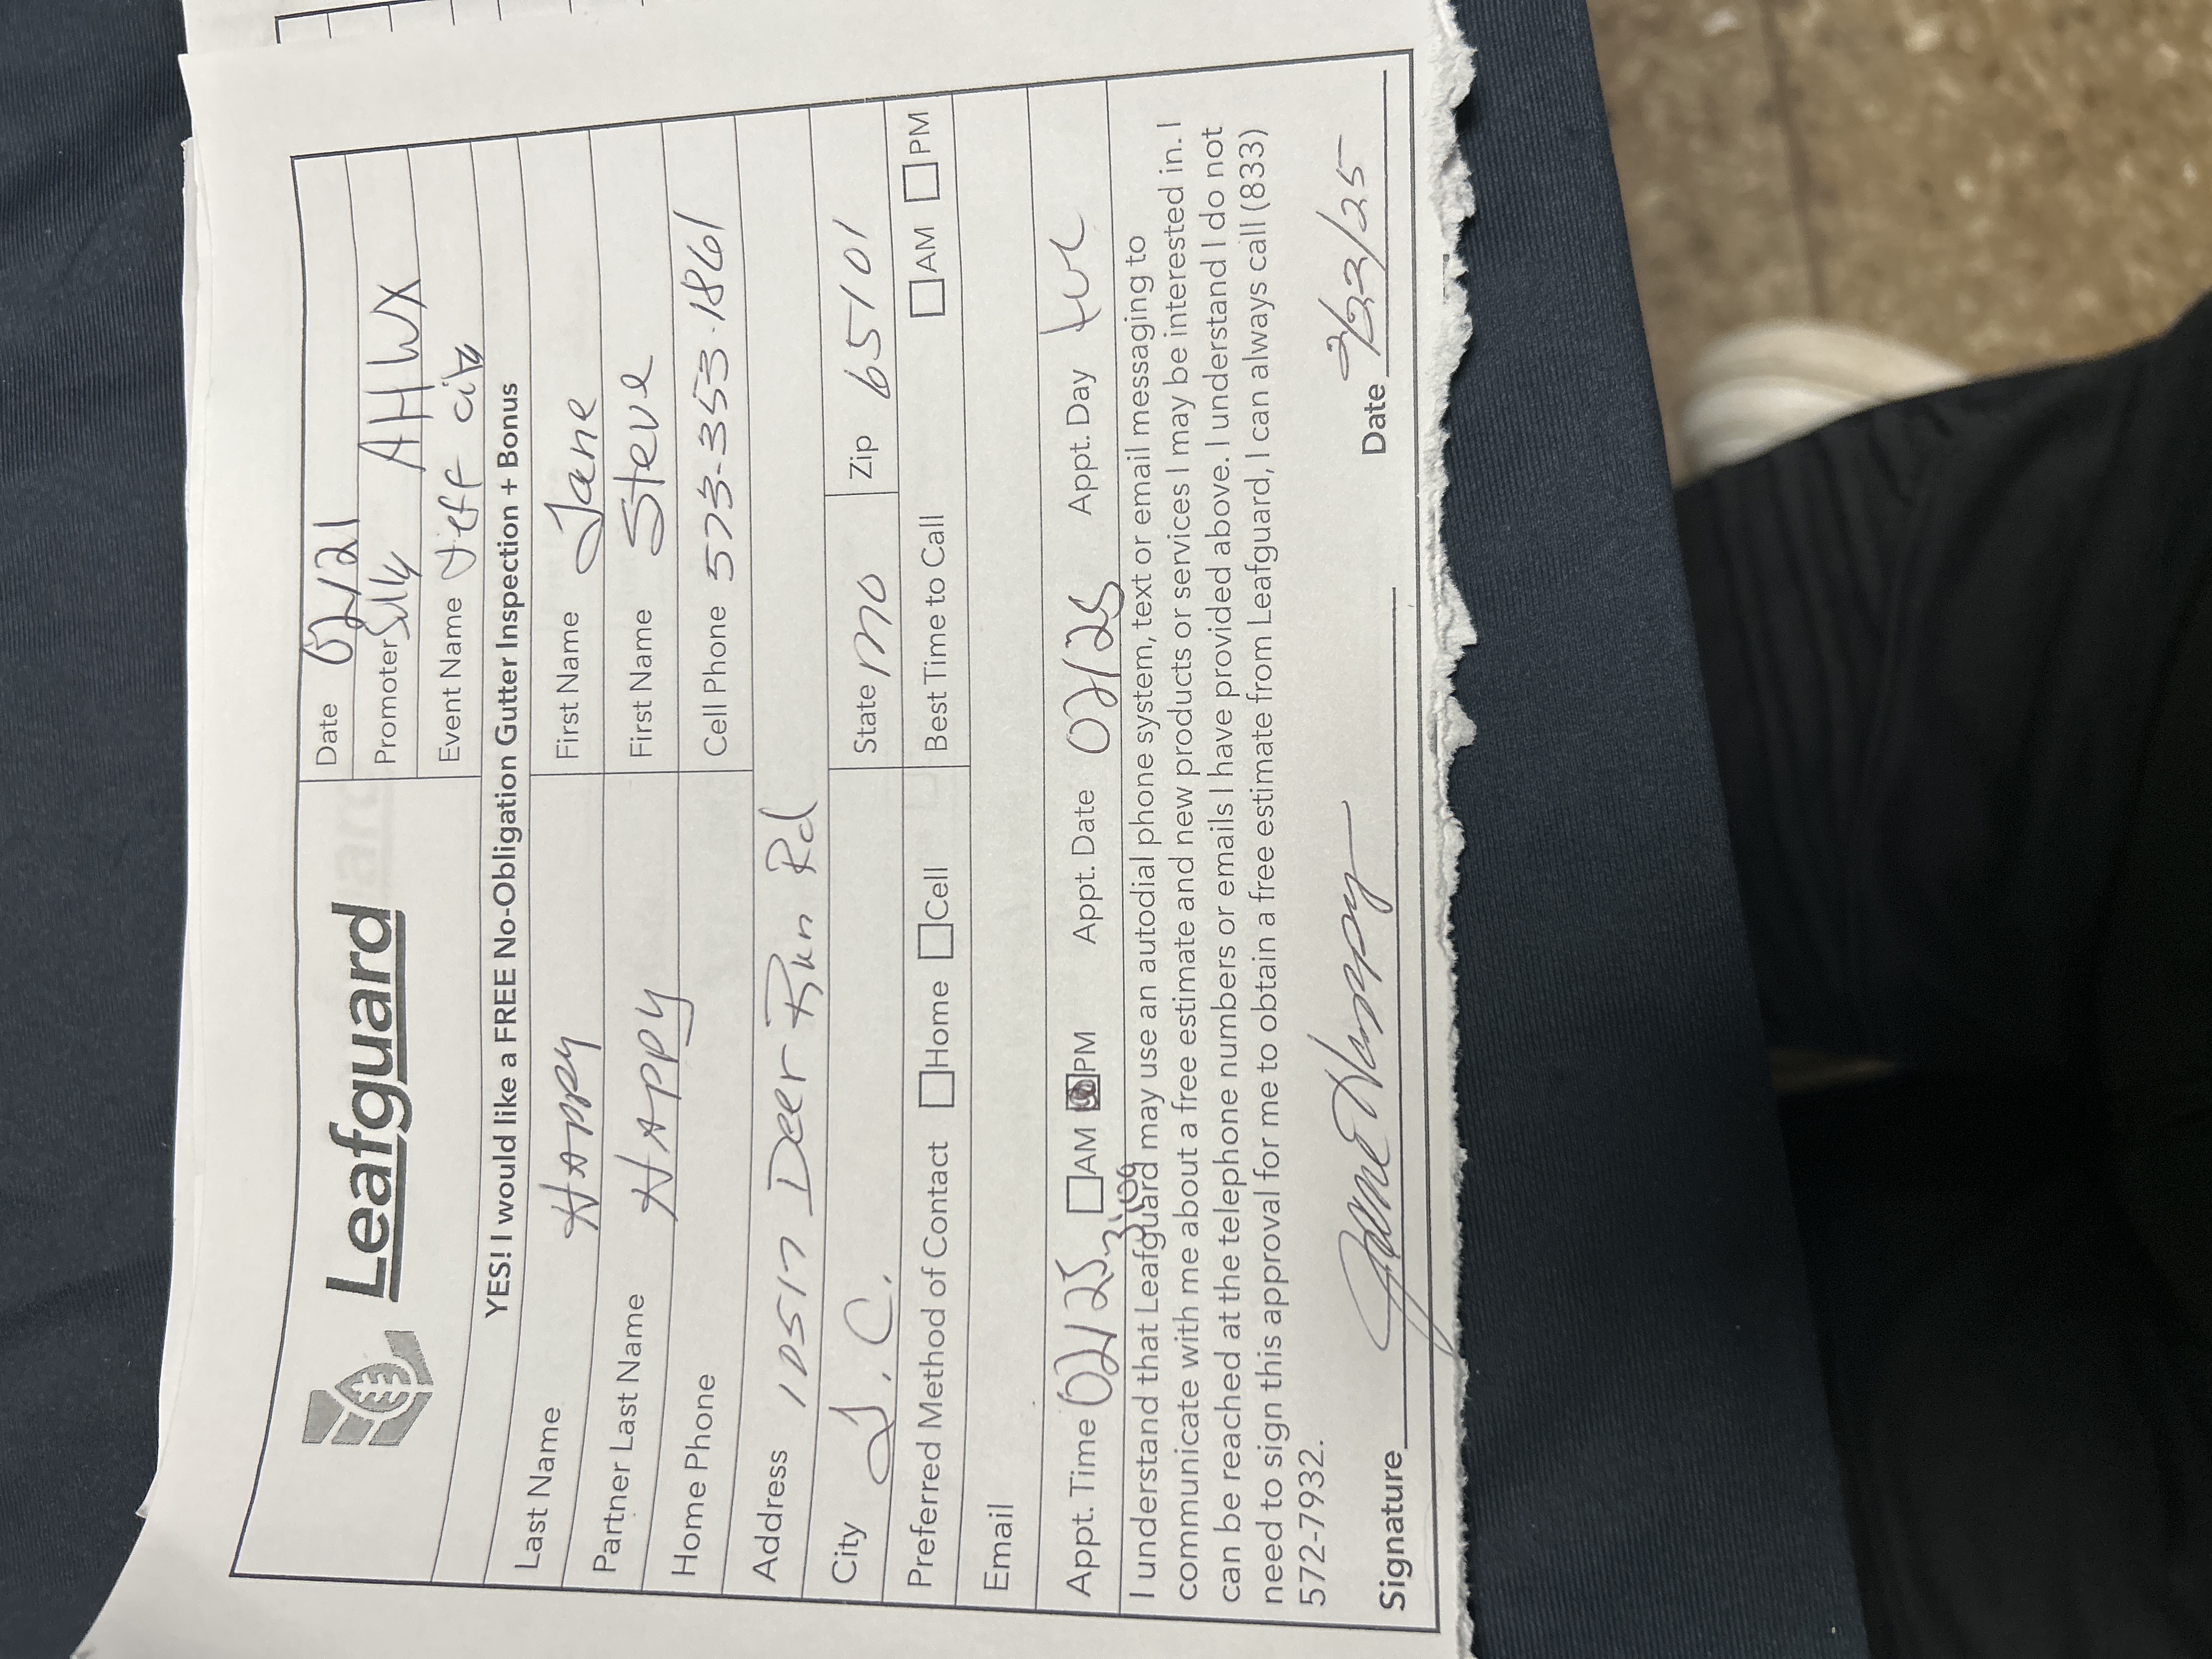 Leafguard
Date 02/21
Promoter AHWX
Event Name Jeff city
YES! I would like a FREE No-Obligation Gutter Inspection + Bonus
Last Name Happy First Name Jane
Partner Last Name Happy First Name Steve
Home Phone Cell Phone 573-353-1861
Address 10517 Deer Run Rd
City J.C. State MO Zip 65101
Preferred Method of Contact Home Cell Best Time to Call AM PM
Email
Appt. Time 02/25 AM PM Appt. Date 02/25 Appt. Day tue
3:00
I understand that Leafguard may use an autodial phone system, text or email messaging to
communicate with me about a free estimate and new products or services I may be interested in. I
can be reached at the telephone numbers or emails I have provided above. I understand I do not
need to sign this approval for me to obtain a free estimate from Leafguard, I can always call (833)
572-7932.
Signature Jane Happy Date 2/22/25